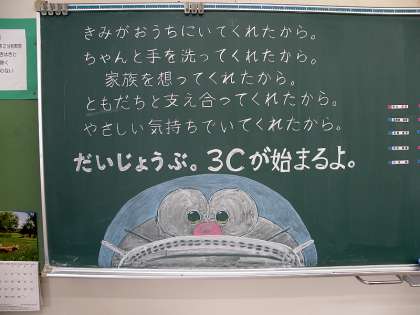 きみがおうちにいてくれたから。
ちゃんと手を洗ってくれたから。
家族を想ってくれたから。
ともだちと支え合ってくれたから。
やさしい気持ちでいてくれたから。
だいじょうぶ。3Cが始まるよ。